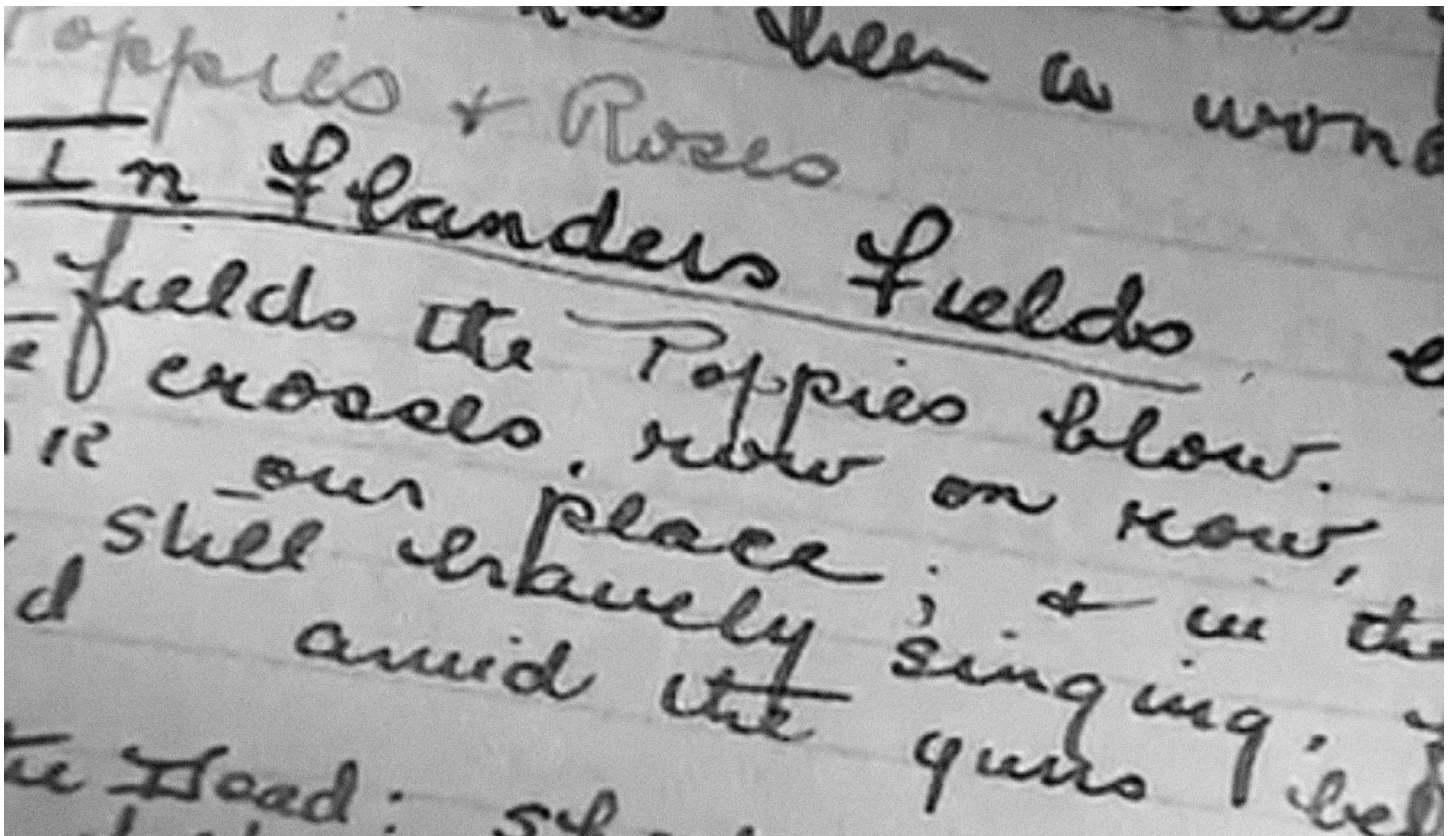 been a
Poppies & Roses
In Flanders Fields
fields the Poppies blow.
crosses, row on row,
our place; & in the
still bravely singing,
amid the guns
Dead: